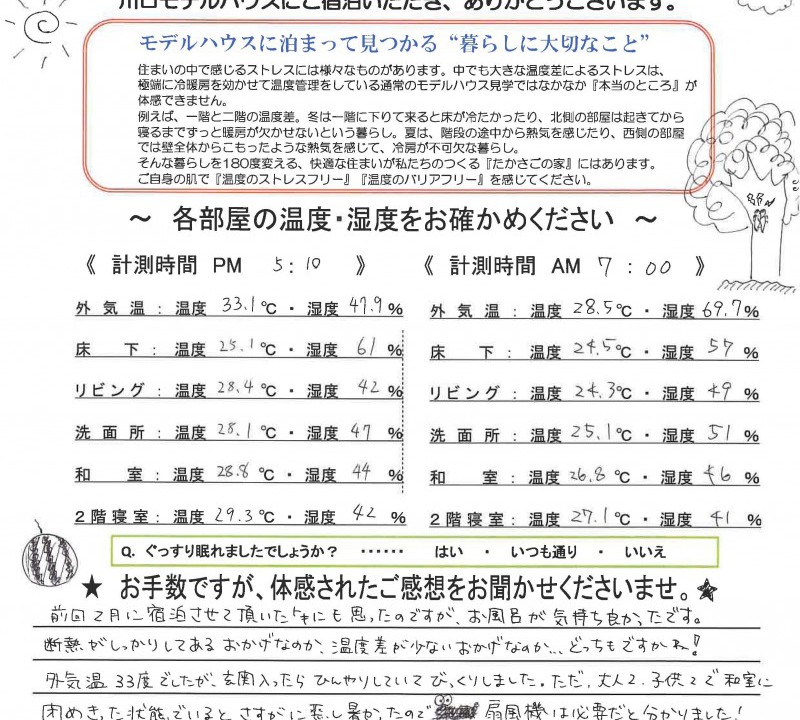 川口モデルハウスにご宿泊いただき、ありがとうございます。
モデルハウスに泊まって見つかる“暮らしに大切なこと”
住まいの中で感じるストレスには様々なものがあります。中でも大きな温度差によるストレスは、
極端に冷暖房を効かせて温度管理をしている通常のモデルハウス見学ではなかなか『本当のところ』が
体感できません。
例えば、一階と二階の温度差。冬は一階に下りて来ると床が冷たかったり、北側の部屋は起きてから
寝るまでずっと暖房が欠かせないという暮らし。夏は、階段の途中から熱気を感じたり、西側の部屋
では壁全体からこもったような熱気を感じて、冷房が不可欠な暮らし。
そんな暮らしを180度変える、快適な住まいが私たちのつくる『たかさごの家』にはあります。
ご自身の肌で『温度のストレスフリー』『温度のバリアフリー』を感じてください。
～ 各部屋の温度・湿度をお確かめください ～
《 計測時間 PM 5:10 》 《 計測時間 AM 7:00 》
外気温：温度 33.1℃・湿度47.9% 外気温：温度 28.5℃・湿度69.7%
床下：温度 25.1℃・湿度 61% 床下：温度 24.5℃・湿度 57%
リビング：温度 28.4℃・湿度 42% リビング：温度 24.3℃・湿度 49%
洗面所：温度 28.1℃・湿度 47% 洗面所：温度 25.1℃・湿度 51%
和室：温度 28.8℃・湿度 44% 和室：温度 26.8℃・湿度 46%
2階寝室：温度 29.3℃・湿度 42% 2階寝室：温度 27.1℃・湿度 41%
Q. ぐっすり眠れましたでしょうか？ ‥‥‥ はい ・ いつも通り ・ いいえ
★ お手数ですが、体感されたご感想をお聞かせくださいませ。★
前回2月に宿泊させて頂いた時にも思ったのですが、お風呂が気持ち良かったです。
断熱がしっかりしてあるおかげなのか、温度差が少ないおかげなのか...どっちもですかね！
外気温33度でしたが、玄関入ったらひんやりしていてびっくりしました。ただ、大人2、子供2で和室に
閉めきった状態でいると、さすがに蒸し暑かったので 扇風機は必要だと分かりました！